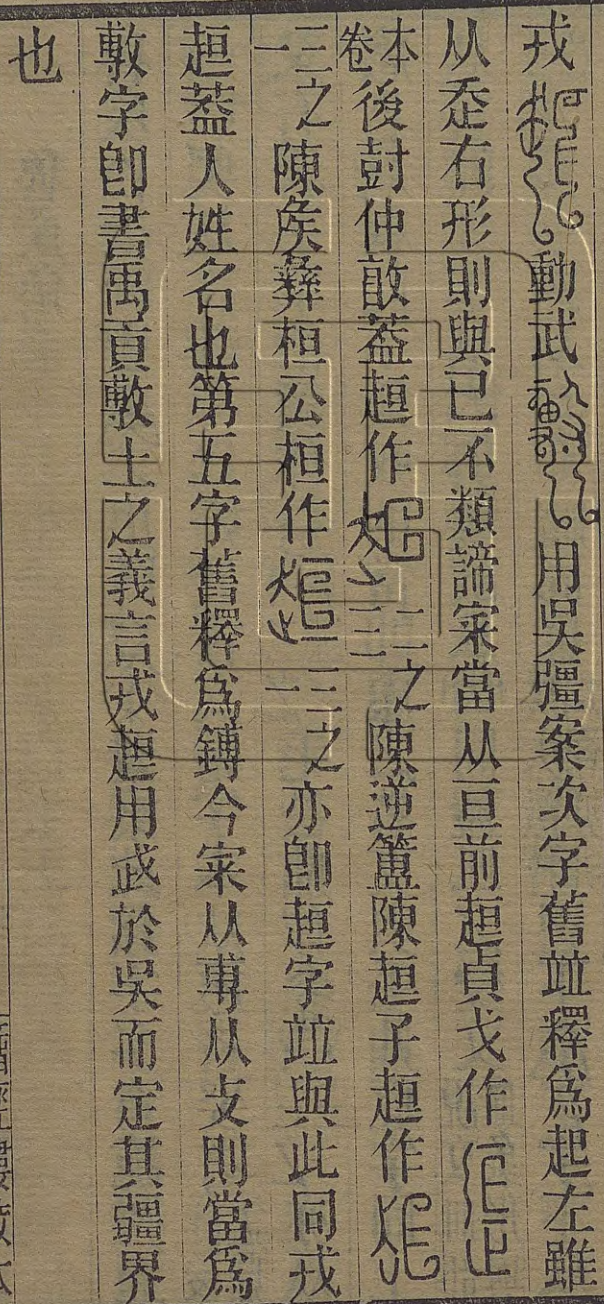 戎動武用吳彊案次字舊竝釋爲起左雖
从辵右形則與已不類諦宷當从亘前趄貞戈作
本卷後封仲敢蓋趄作二之三陳逆簠陳趄子趄作
三之一陳矦彝桓公桓作三之一亦卽趄字竝與此同戎
趄蓋人姓名也第五字舊釋爲鎛今宷从尃从攴則當爲
敷字卽書禹貢敷土之義言戎趄用武於吳而定其疆界
也